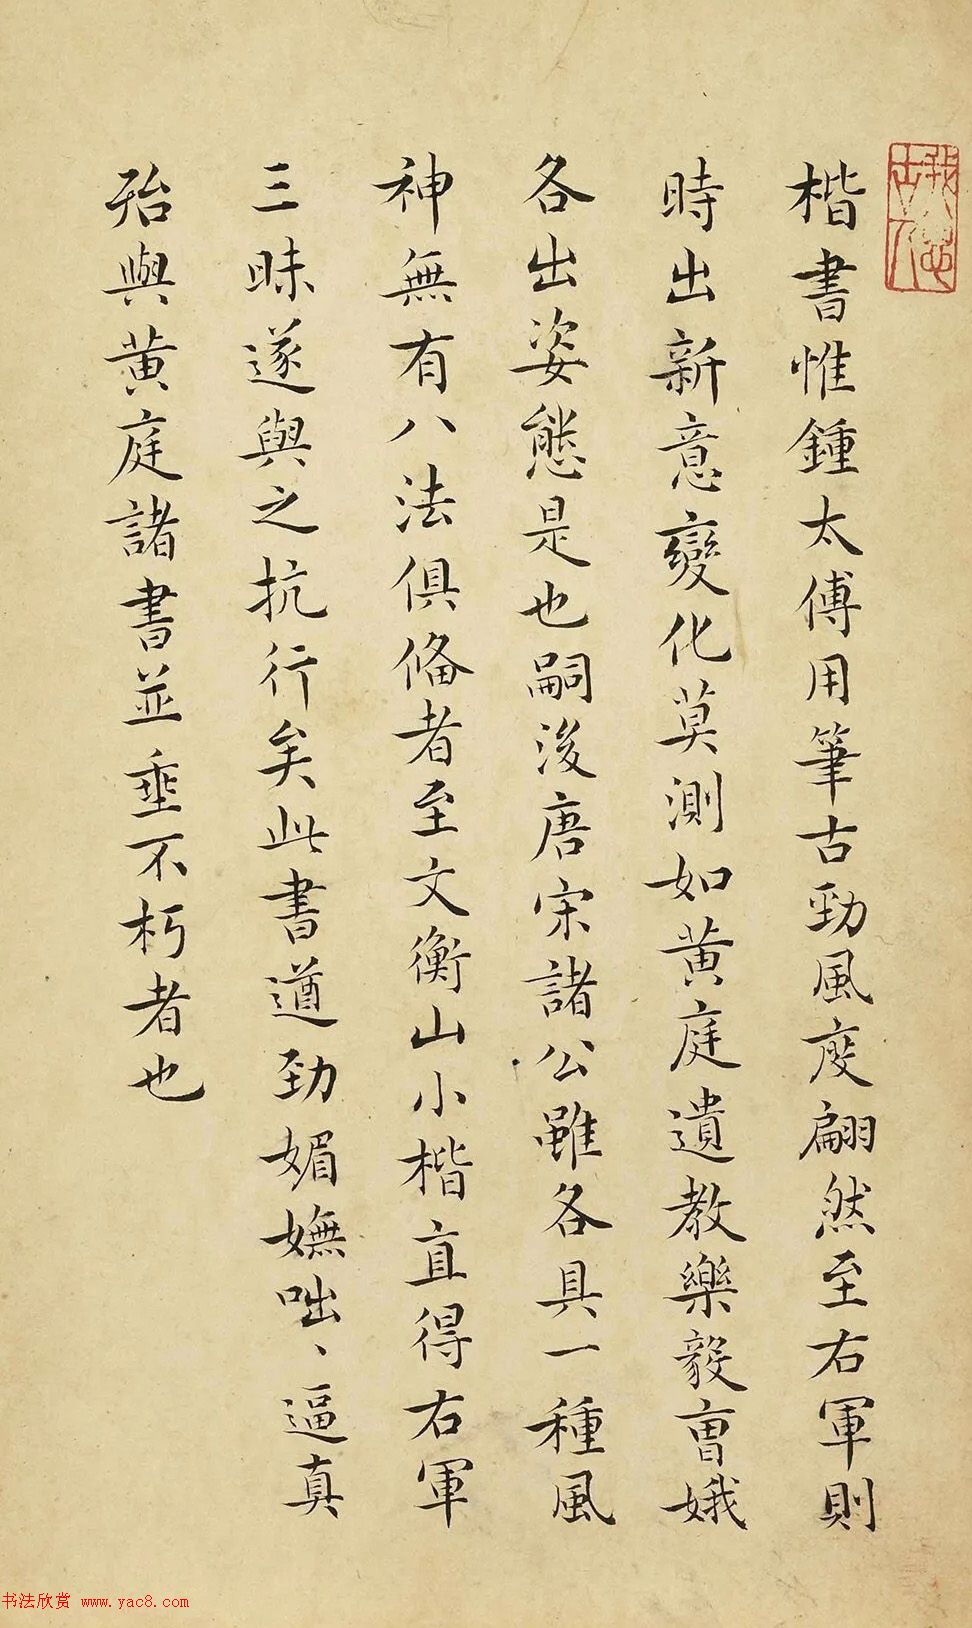 楷書惟鍾太傅用筆古勁風度翩然至右軍則
時出新意變化莫測如黄庭遺教樂毅曺娥
各出姿態是也嗣後唐宋諸公雖各具一種風
神無有八法俱俻者至文衡山小楷直得右軍
三昧遂與之抗行矣此書遒勁媚嫵咄〻逼真
殆與黄庭諸書並垂不朽者也
书法欣赏 www.yac8.com